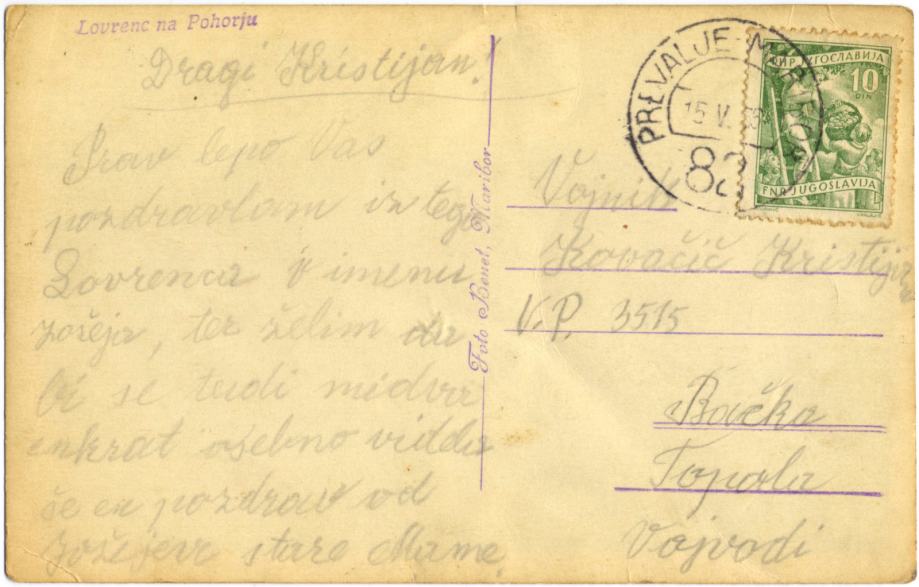 Lovrenc na Pohorju
Dragi Kristijan!
Prav lepo Vas
pozdravlam iz tega
Lovrenca v imenu
Jožeja, ter želim da
bi se tudi midva
enkrat osebno vidla
še en pozdrav od
Jožejeve stare Mame.
Foto Benet, Maribor
PREVALJE-MARIBOR
15 V.
82
FNR JUGOSLAVIJA
10
DIN
FNR JUGOSLAVIJA
Vojnik
Kovačič Kristijan
V.P. 3515
Bačka
Topola
Vojvodi